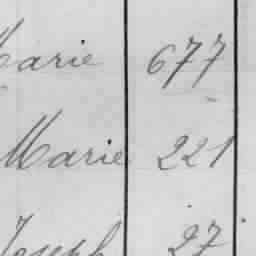 Marie 677
Marie 221
Joseph 27